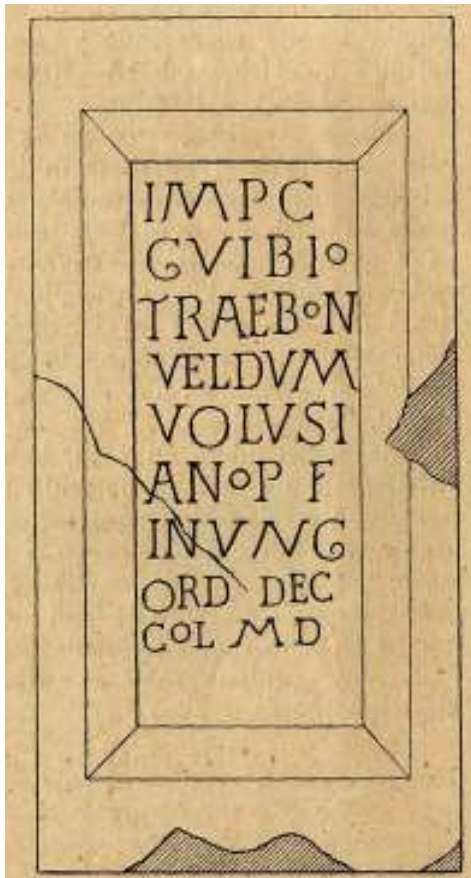 IMP C
G VIBIO
TRAEBON
VELDVM
VOLVSI
ANO P F
INV NG
ORD DEC
COL M D